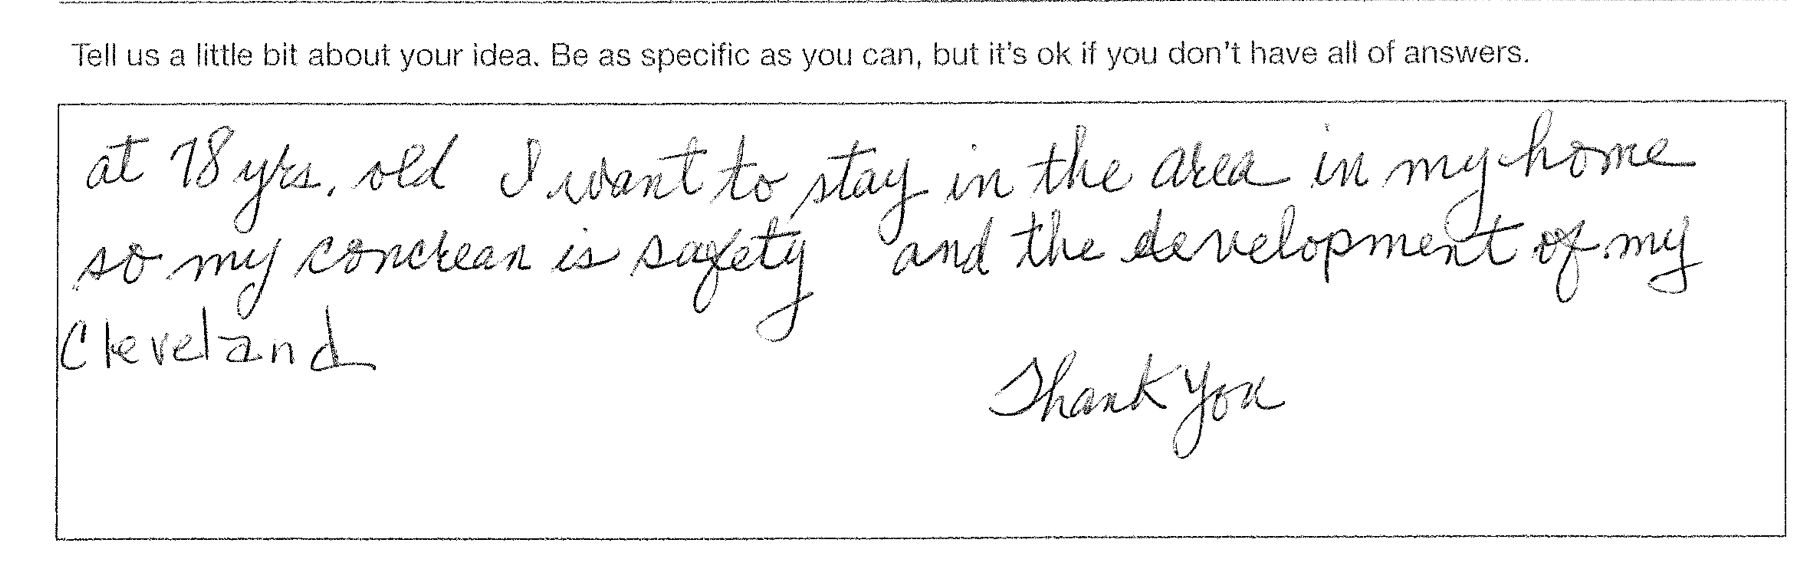 Tell us a little bit about your idea. Be as specific as you can, but it's ok if you don't have all of answers.
at 78 yrs. old I want to stay in the area in my home
so my concrean is safety and the development of my
Cleveland
Thank You